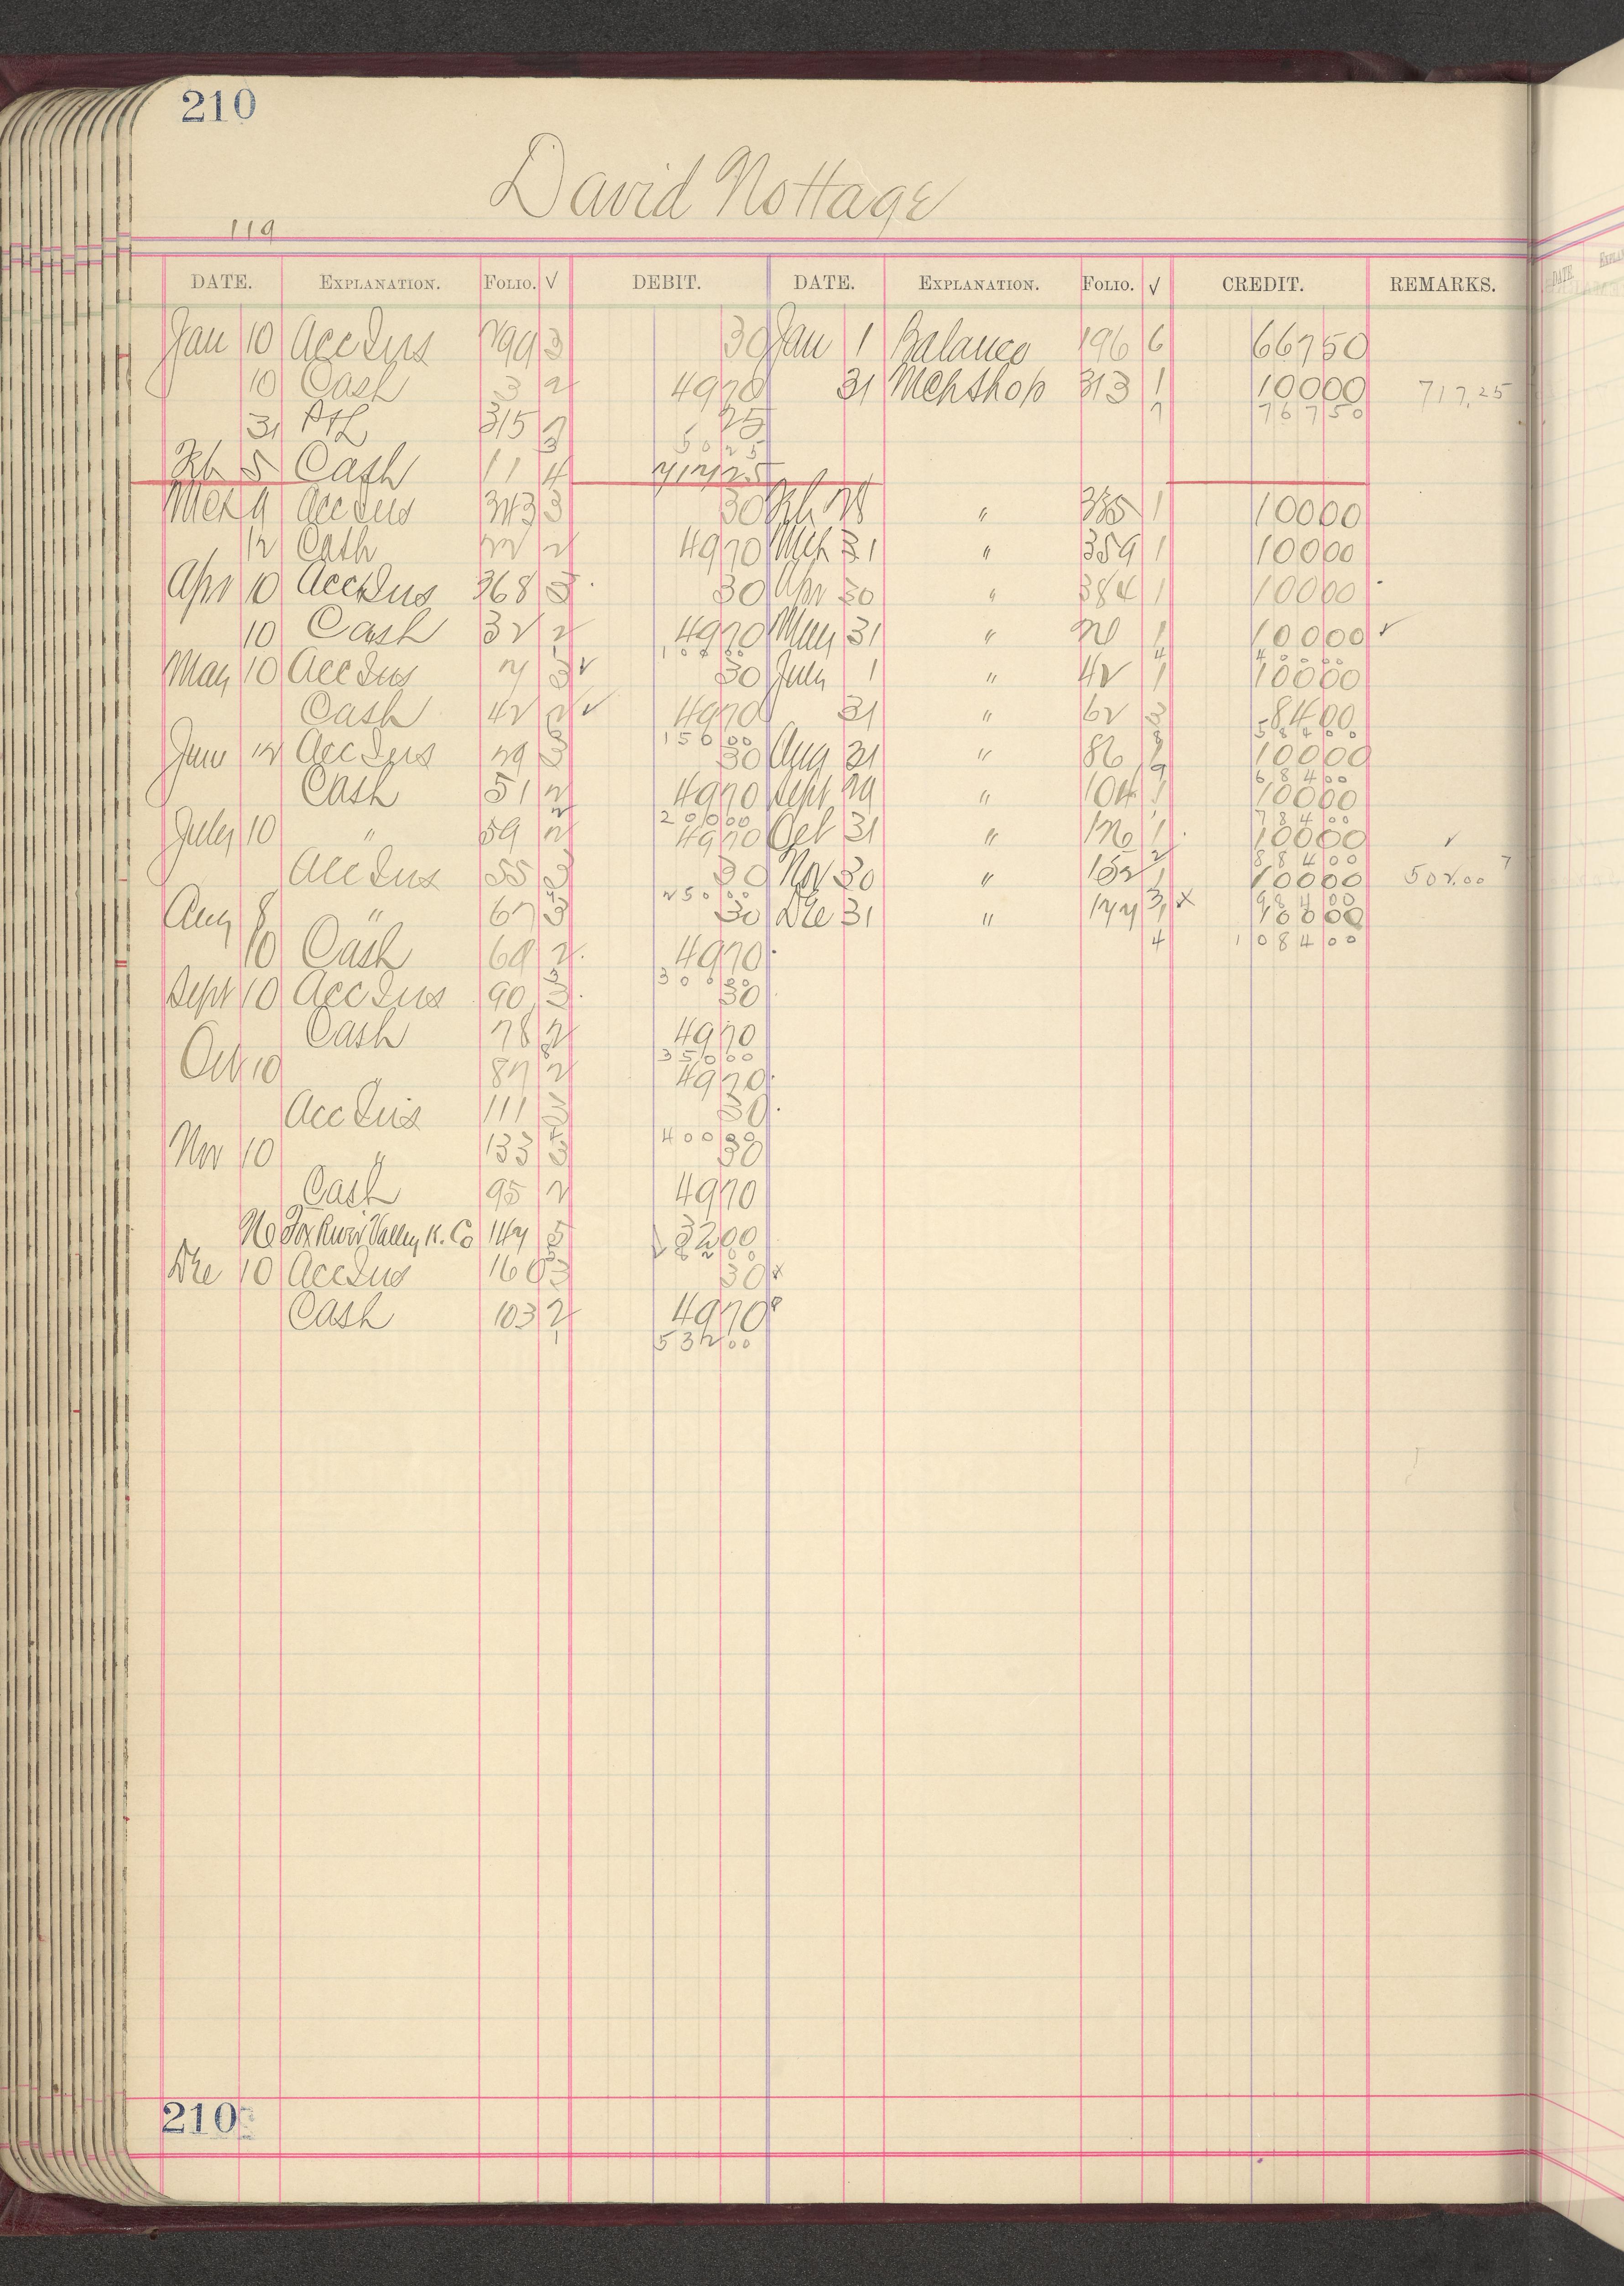 210
David Nottage
119
DATE. EXPLANATION. FOLIO. √ DEBIT. DATE. EXPLANATION. FOLIO. √ CREDIT. REMARKS.
Jan 10 Acc Ins 299 3 30 Jan 1 Balance 196 6 667 50
10 Cash 3 2 49 70 31 Mchshop 313 1 100 00 717.25
31 P&L 315 2 25 7 767 50
3 50 25
Feb 5 Cash 11 4 717 25
Mch 9 Acc Ins 343 3 30 Feb 28 " 335 1 100 00
12 Cash 22 2 49 70 Mch 31 " 359 1 100 00
Apr 10 Acc Ins 368 3 30 Apr 30 " 384 1 100 00
10 Cash 32 2 49 70 May 31 " 20 1 100 00 √
1 100 00 4 400 00
May 10 Acc Ins 7 3 √ 30 July 1 " 42 1 100 00
Cash 42 2 √ 49 70 31 " 62 3 84 00
150 00 8 584 00
June 12 Acc Ins 29 3 30 Aug 31 " 86 1 100 00
9 684 00
Cash 51 2 49 70 Sept 29 " 104 1 100 00
2 200 00 784 00
July 10 " 59 2 49 70 Oct 31 " 120 1 100 00 √
2 884 00
Acc Ins 55 3 30 Nov 30 " 152 1 100 00 502.00
250 00 3 x 984 00
Aug 8 " 67 3 30 Dec 31 " 177 1 100 00
10 Cash 69 2 49 70 4 1084 00
3 300 00
Sept 10 Acc Ins 90 3 30
Cash 78 2 49 70
350 00
Oct 10 " 87 2 49 70
Acc Ins 111 3 30
400 00
Nov 10 " 133 3 30
Cash 95 2 49 70
16 Fox River Valley K. Co 147 5 32 00
Dec 10 Acc Ins 160 3 30 x
Cash 103 2 49 70
1 532 00
210